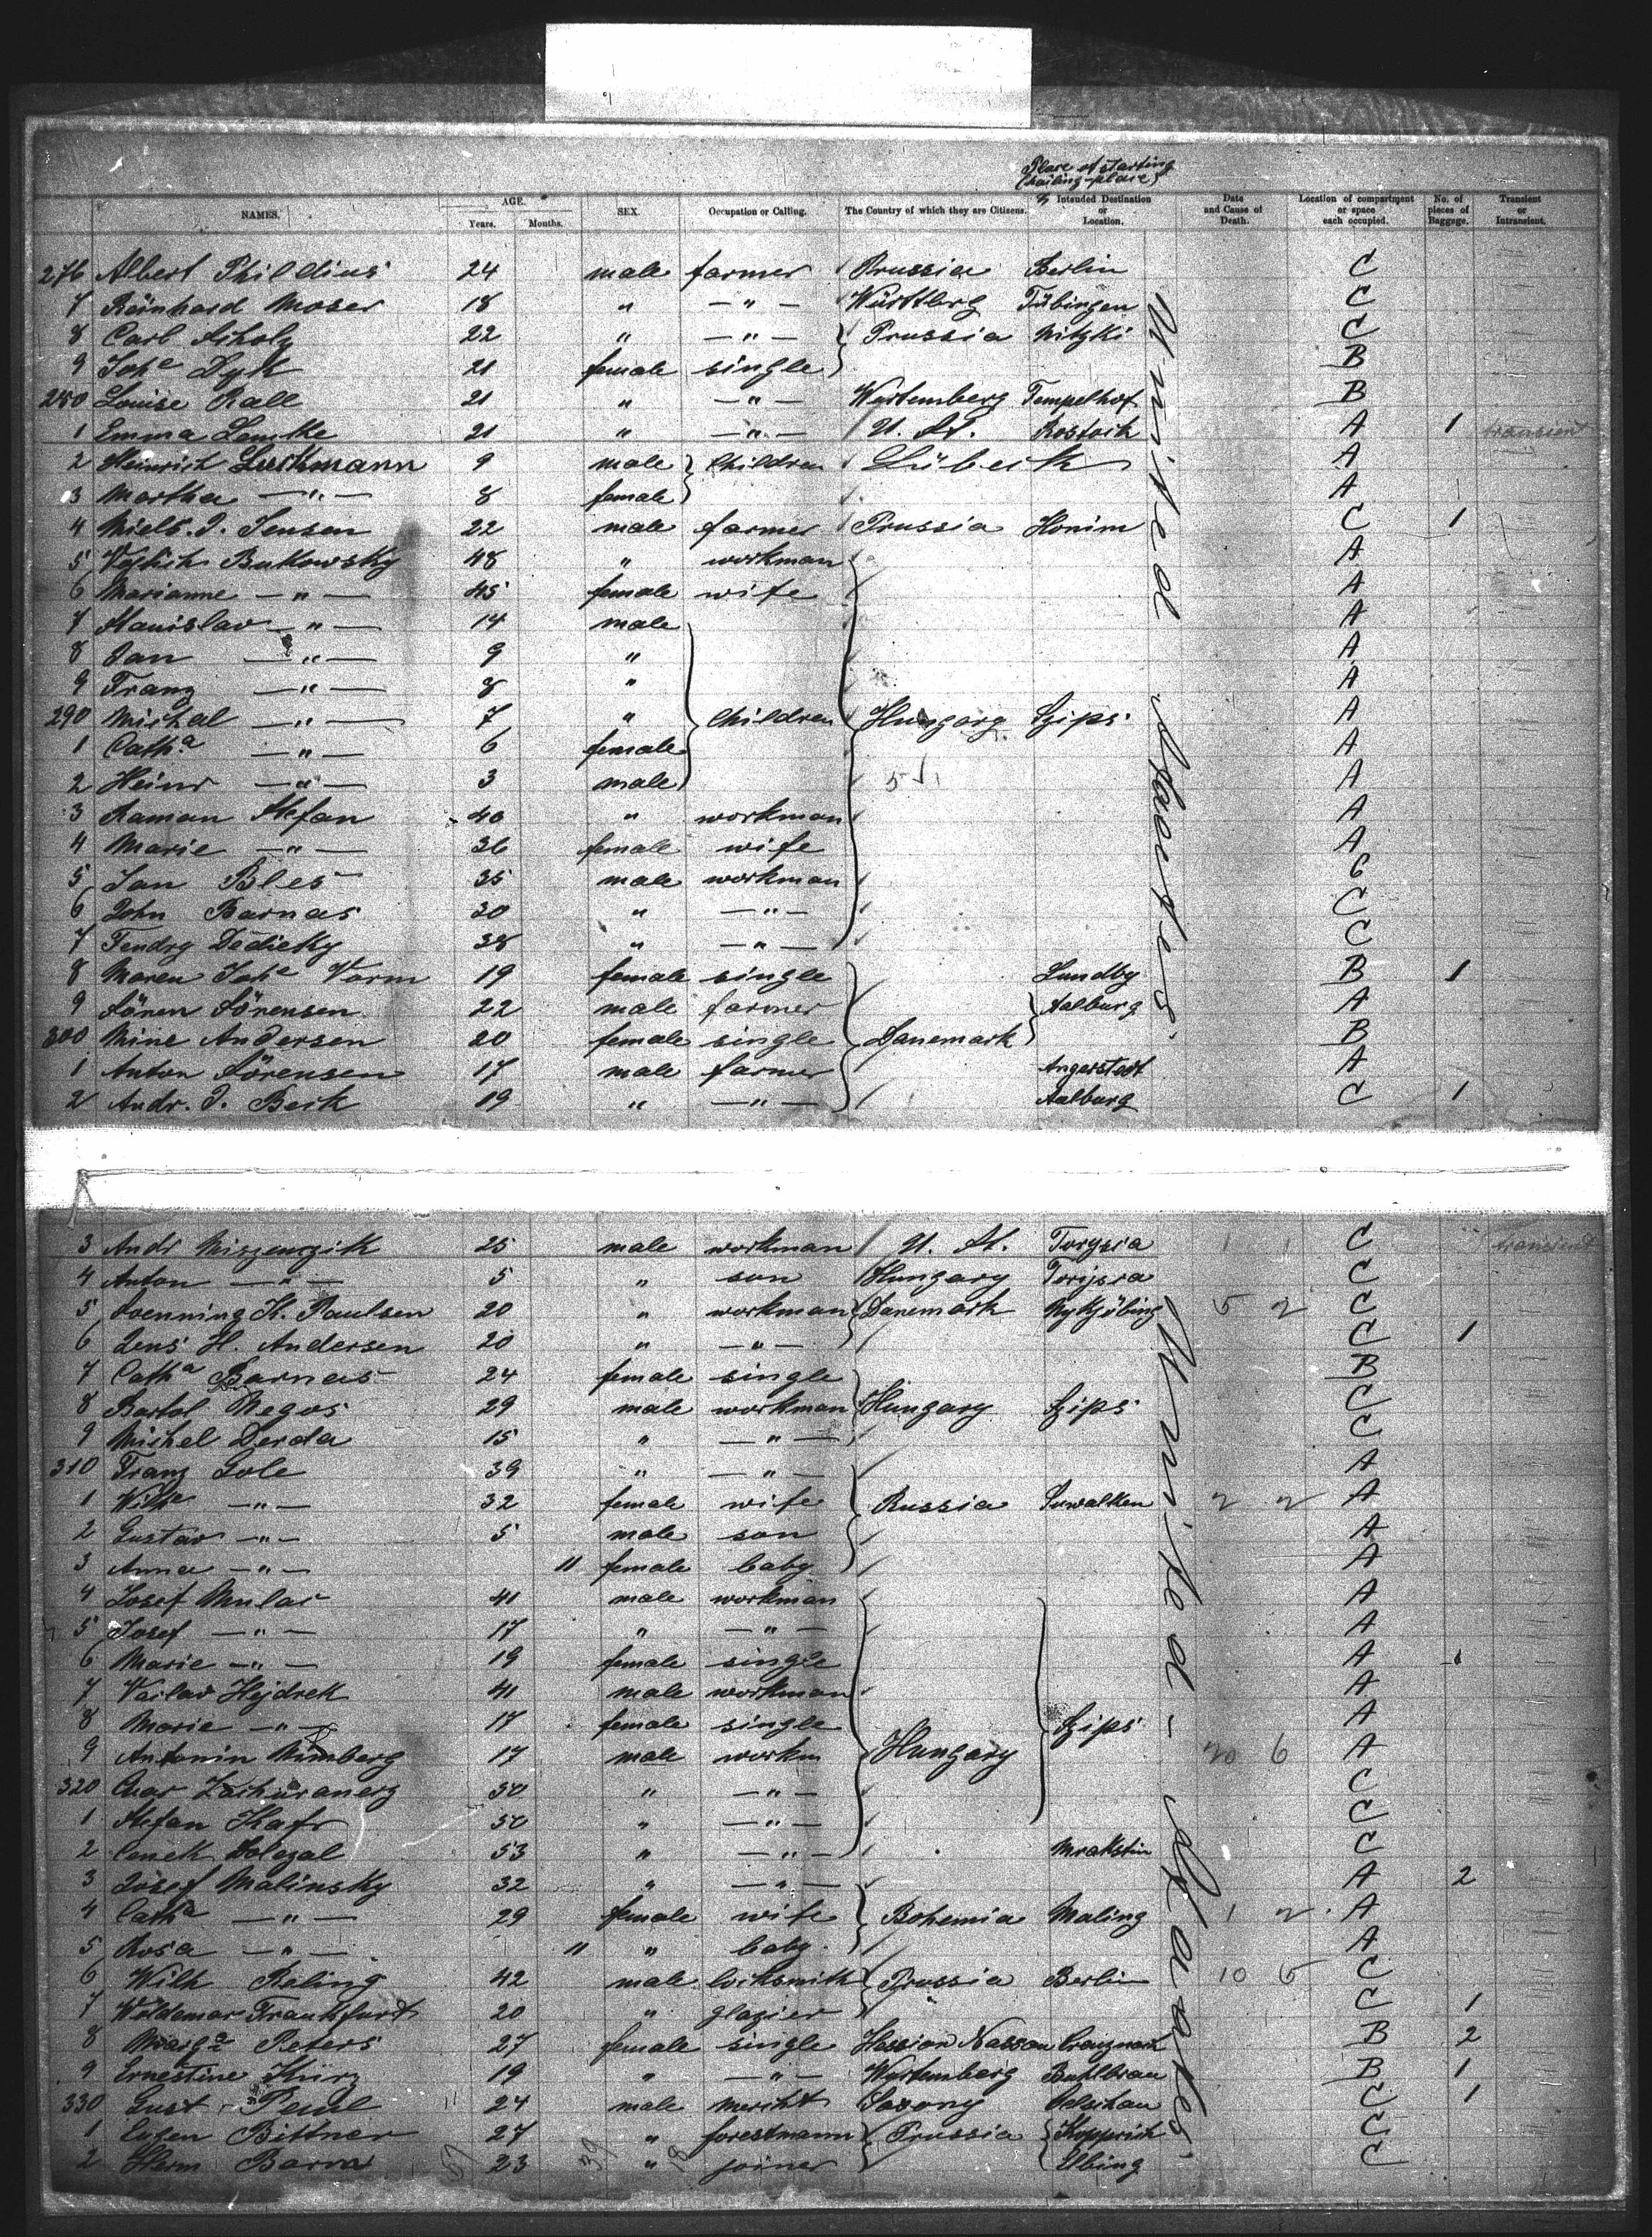 Place of starting
(sailing-place)
NAMES. AGE. Years. Months. SEX. Occupation or Calling. The Country of which they are Citizens. Intended Destination or Location. Date and Cause of Death. Location of compartment or space each occupied. No. of pieces of Baggege. Transient or Intransient.
276 Albert Phildius 24 male farmer Prussia Berlin C
7 Reinhard Moser 18 " —"— Württbrg Tübingen C
8 Carl 22 " —"— Prussia Nitzki C
9 Joh.e Dyk 21 female single B
280 Louise Rall 21 " —"— Wurtemberg Tempelhof B
1 Emma Lemcke 21 " —"— U. St. Rostock A 1 transient
2 Heinrich Luckmann 9 male Children Lübeck A
3 Martha —"— 8 female A
4 Niels. J. Jensen 22 male farmer Prussia Honim C 1
5 Bukowsky 48 " workman A
6 Marianne —"— 45 female wife A
7 Stanislav —"— 14 male A
8 Jan —"— 9 " A
9 Franz —"— 8 " A
290 Michal —"— 7 " Children Hungary Szips A
1 Cath.a —"— 6 female A
2 Heinr —"— 3 male 5 1 A
3 Raman Stefan 40 " workman A
4 Marie —"— 36 female wife A
5 Jan Bles 35 male workman C
6 John Barnas 30 " —"— C
7 Dedicky 38 " —"— C
8 Maren Joh.e Vorm 19 female single Lundby B 1
9 Sören Sörensen 22 male farmer Aalburg A
300 Mine Andersen 20 female single Danemark B
1 Anton Sörensen 17 male farmer Angerstedt A
2 Andr. J. Beck 19 " —"— Aalburg C 1
United States
3 Andr Miszenczik 25 male workman U. St. Torysia 1 1 C transient
4 Anton —"— 5 " son Hungary Torysia C
5 K. Paulsen 20 " workman Danemark Nykjöbing 5 2 C
6 Jens H. Andersen 20 " —"— C 1
7 Cath.a Barnas 24 female single B
8 Bartol Negos 29 male workman Hungary Szips C
9 Michel Derda 15 " —"— C
310 Franz Lole 39 " —"— A
1 Wilh.e —"— 32 female wife Russia Suwalken 2 2 A
2 Gustav —"— 5 male son A
3 Anna —"— 11 female baby A
4 Josef Mulac 41 male workman A
5 Josef —"— 17 " —"— A
6 Marie —"— 19 female single A
7 Vaclav Hejdrek 41 male workman A
8 Marie —"— 17 female single Szips A
9 Antonin Nimberg 17 male workm Hungary 20 6 A
320 30 " —"— C
1 Stefan Kafr 50 " —"— C
2 Cenek Dolezal 53 " —"— Mrakstin C
3 Josef Malinsky 32 " —"— A 2
4 Cath.a —"— 29 female wife Bohemia Maling 1 2 A
5 Rosa —"— 11 " baby A
6 Wilh Reling 42 male locksmith Prussia Berlin 10 5 C
7 Woldemar Frankfurt 20 " glazier C 1
8 Marg.a Peters 27 female single Hession Nassau Creuznach B 2
9 Ernestine Kürz 19 " —"— Wurtemberg B 1
330 Gust. Paul 24 male mercht Saxony Oelschau C 1
1 Eugen Bittner 27 " forestmann Prussia Kopprich C
2 Herm Barra 23 " joiner Elbing C
United States